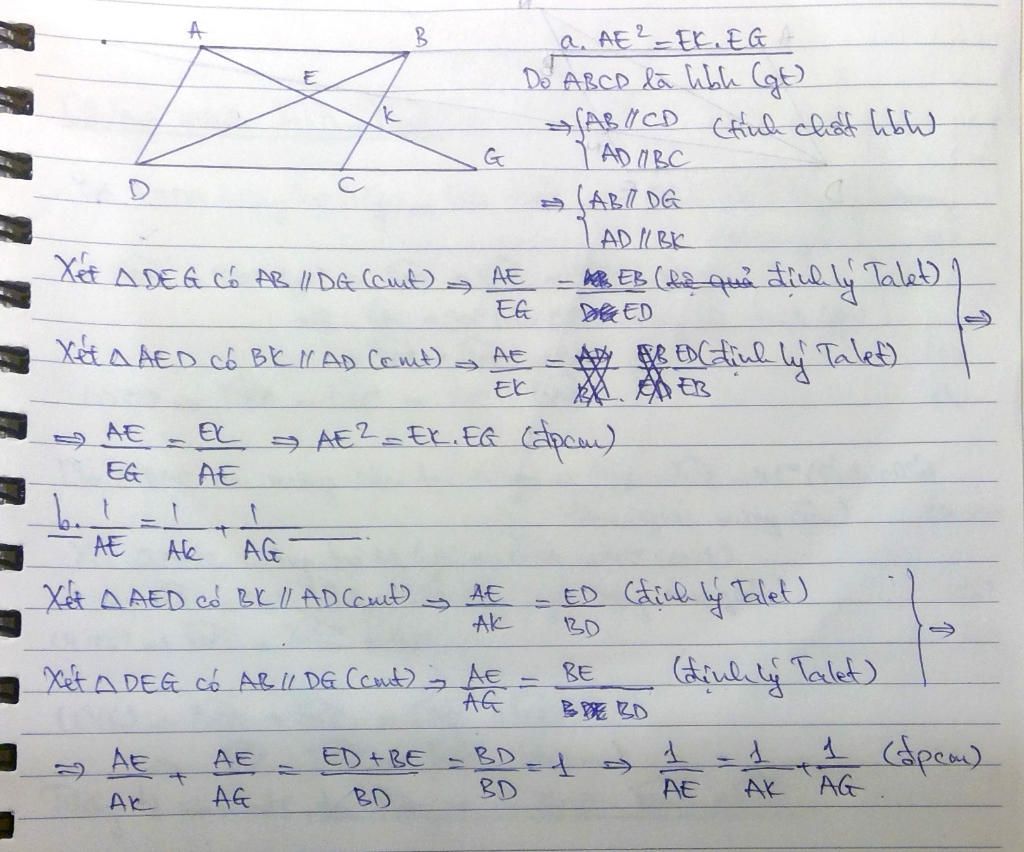 A B
E
K
D C G
a. AE² = EK.EG
Do ABCD là hbh (gt)
⇒ { AB // CD (tính chất hbh)
AD // BC
⇒ { AB // DG
AD // BK
Xét △DEG có AB // DG (cmt) ⇒ AE/EG = EB/ED (định lý Talet)
Xét △AED có BK // AD (cmt) ⇒ AE/EK = ED/EB (định lý Talet) } ⇒
⇒ AE/EG = EK/AE ⇒ AE² = EK.EG (đpcm)
b. 1/AE = 1/AK + 1/AG
Xét △AED có BK // AD (cmt) ⇒ AE/AK = ED/BD (định lý Talet)
Xét △DEG có AB // DG (cmt) ⇒ AE/AG = BE/BD (định lý Talet) } ⇒
⇒ AE/AK + AE/AG = ED + BE/BD = BD/BD = 1 ⇒ 1/AE = 1/AK + 1/AG (đpcm)